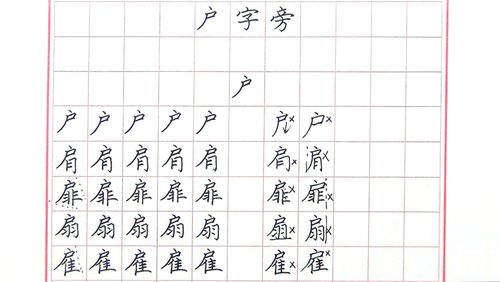 户字旁
户
户 户 户 户 户 户× 户×
肩 肩 肩 肩 肩 肩× 肩×
扉 扉 扉 扉 扉 扉× 扉×
扇 扇 扇 扇 扇 扇× 扇×
雇 雇 雇 雇 雇 雇× 雇×